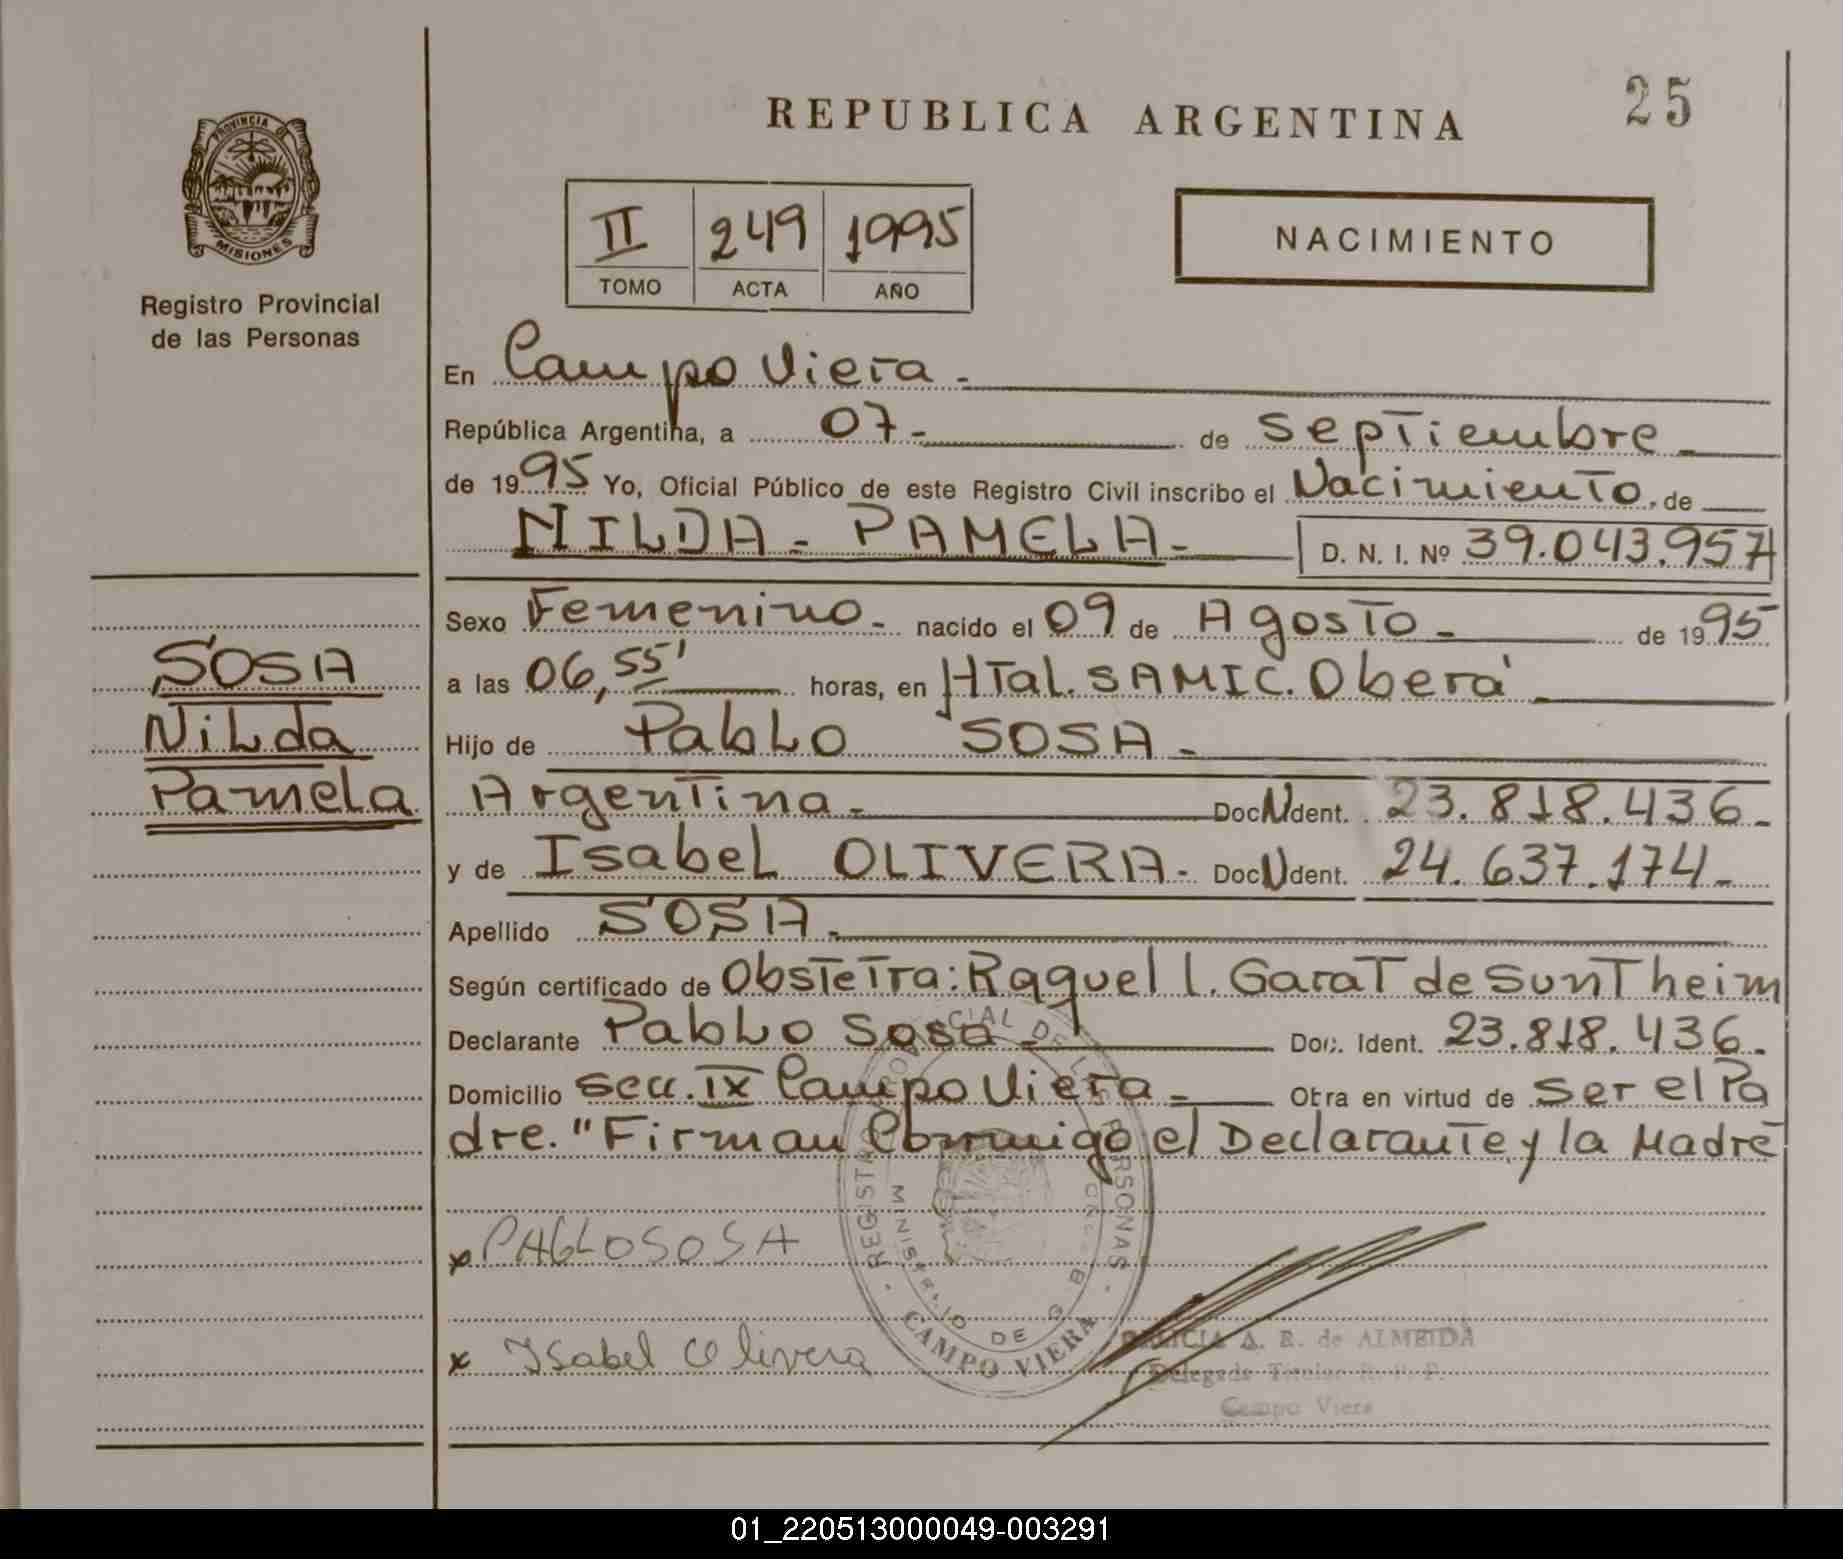 REPUBLICA ARGENTINA
25
PROVINCIA DE
MISIONES
Registro Provincial
de las Personas
II 249 1995
TOMO ACTA AÑO
NACIMIENTO
En Campo Viera.-
República Argentina, a 07- de septiembre
de 1995 Yo, Oficial Público de este Registro Civil inscribo el Nacimiento. de
NILDA - PAMELA- D. N. I. Nº 39.043.957
Sexo Femenino- nacido el 09 de Agosto- de 1995
a las 06,55' horas, en HTal. SAMIC. Oberá
Hijo de Pablo SOSA-
Argentina- Doc N Ident. 23.818.436-
y de Isabel OLIVERA- Doc N Ident. 24.637.174-
Apellido SOSA-
Según certificado de Obstetra: Raquel I. Garat de Suntheim
Declarante Pablo Sosa- Doc. Ident. 23.818.436-
Domicilio secc. IX Campo Viera- Obra en virtud de ser el Pa
dre. "Firman Conmigo el Declarante y la Madre
SOSA
Nilda
Pamela
x PABLO SOSA
x Isabel Olivera
REGISTRO PROVINCIAL DE LAS PERSONAS
MINISTERIO DE G
CAMPO VIERA
A. R. de ALMEIDA
Delegada Titular R. P. P.
Campo Viera
01_220513000049-003291